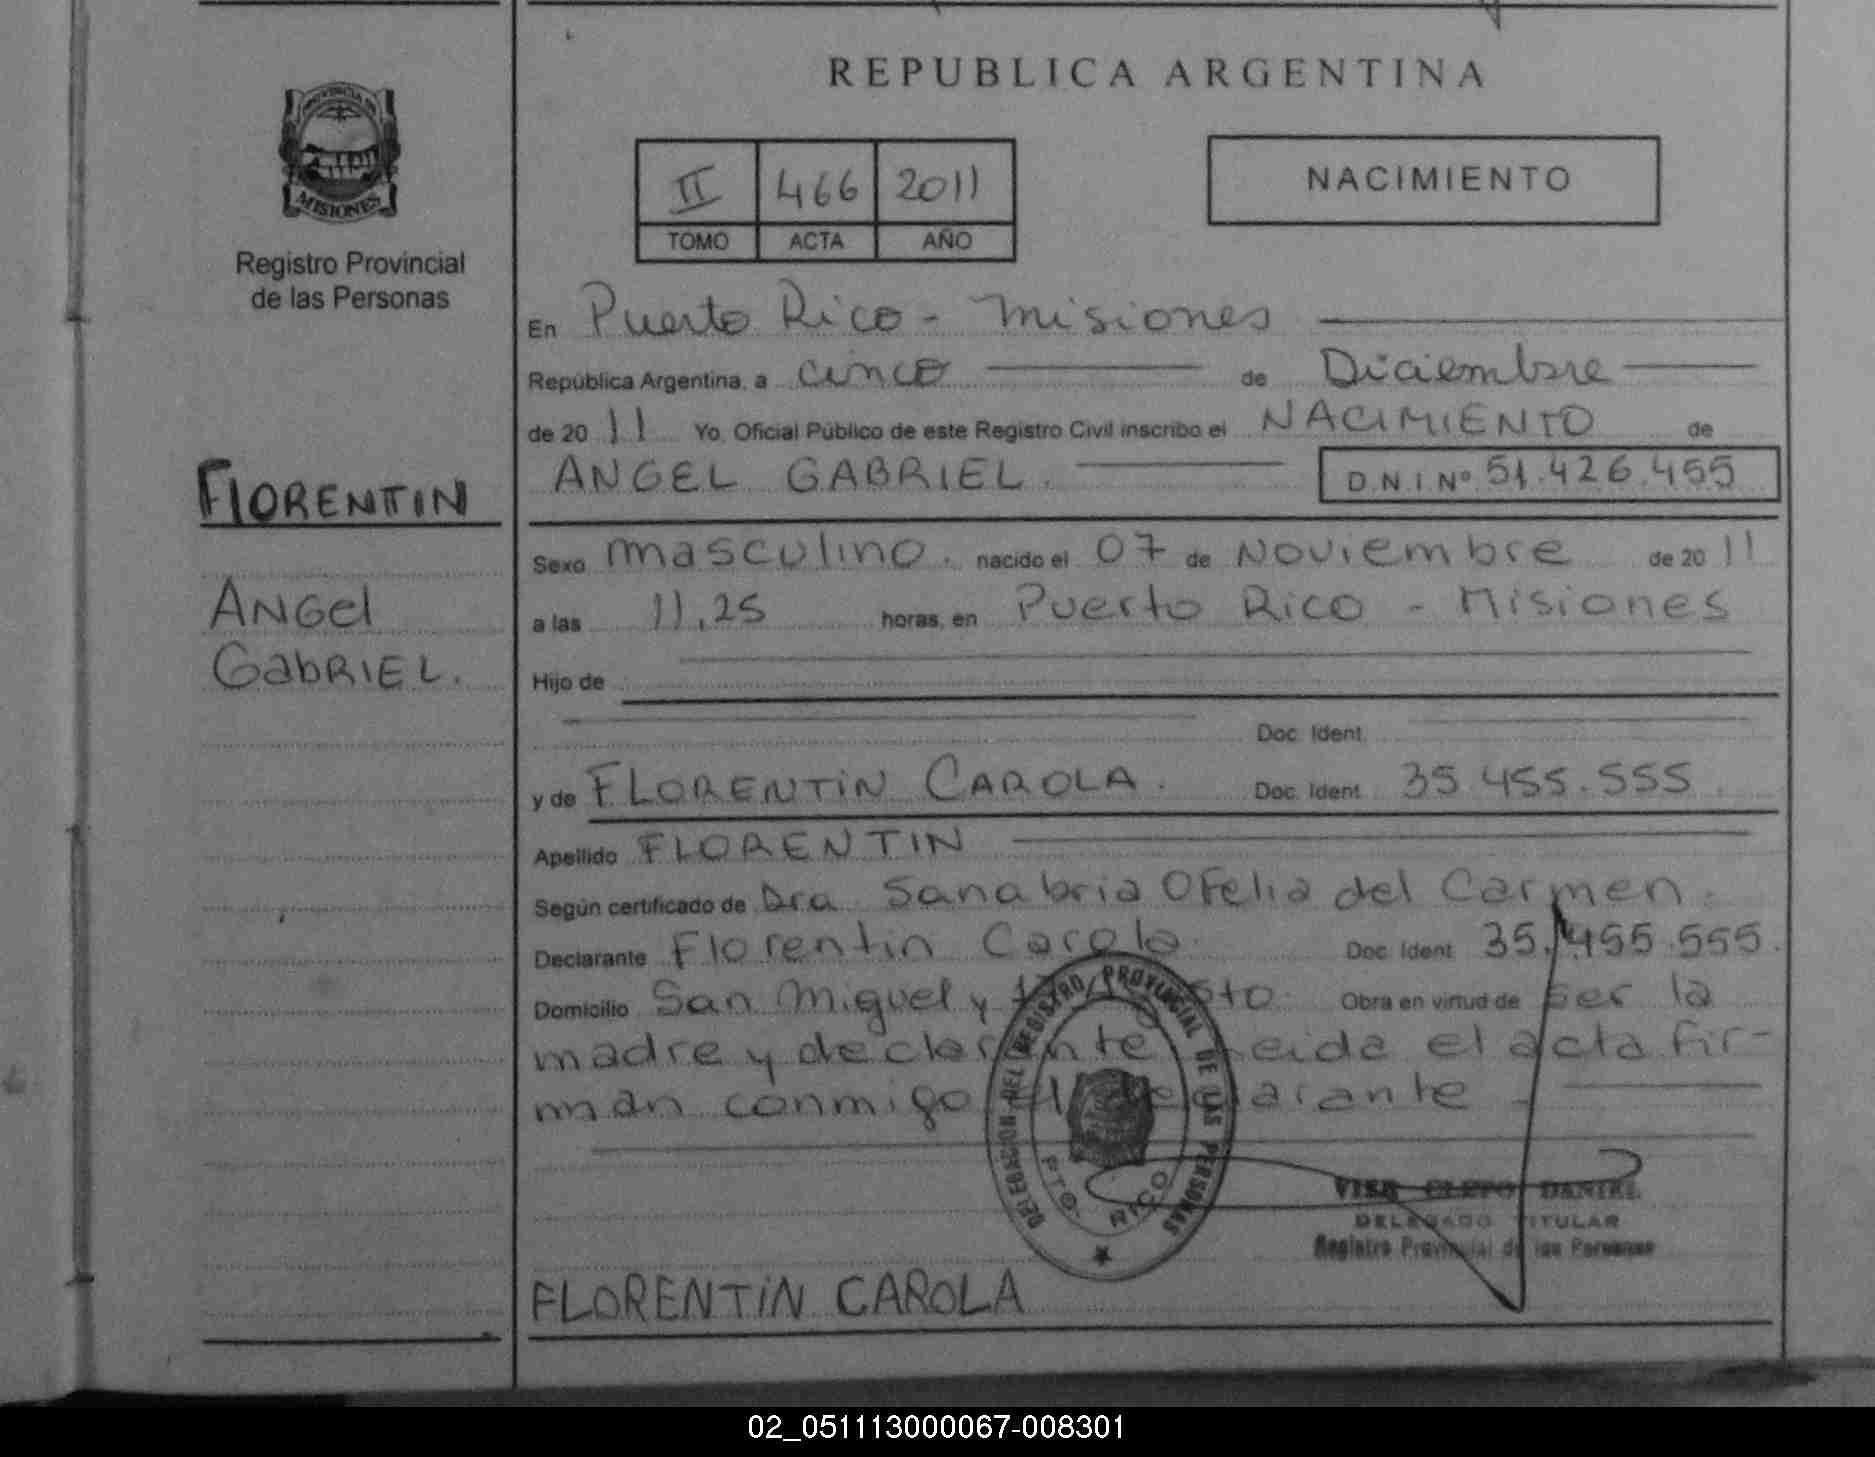 REPUBLICA ARGENTINA
PROVINCIA DE
MISIONES
Registro Provincial
de las Personas
II 466 2011
TOMO ACTA AÑO
NACIMIENTO
En Puerto Rico - Misiones
República Argentina, a cinco de Diciembre
de 2011 Yo, Oficial Público de este Registro Civil inscribo el NACIMIENTO de
ANGEL GABRIEL. D.N.I Nº 51.426.455
FLORENTIN
Angel
Gabriel.
Sexo masculino. nacido el 07 de Noviembre de 2011
a las 11,25 horas, en Puerto Rico - Misiones
Hijo de
Doc. Ident.
y de FLORENTIN CAROLA. Doc. Ident. 35.455.555.
Apellido FLORENTIN
Según certificado de Dra Sanabria Ofelia del Carmen.
Declarante Florentin Carola. Doc. Ident. 35.455.555.
Domicilio San Miguel y Obra en virtud de ser la
madre y declarante leida el acta fir-
man conmigo el declarante -
DELEGACION DEL REGISTRO PROVINCIAL DE LAS PERSONAS
PTO. RICO
DANIEL
DELEGADO TITULAR
Registro Provincial de las Personas
FLORENTIN CAROLA
02_051113000067-008301